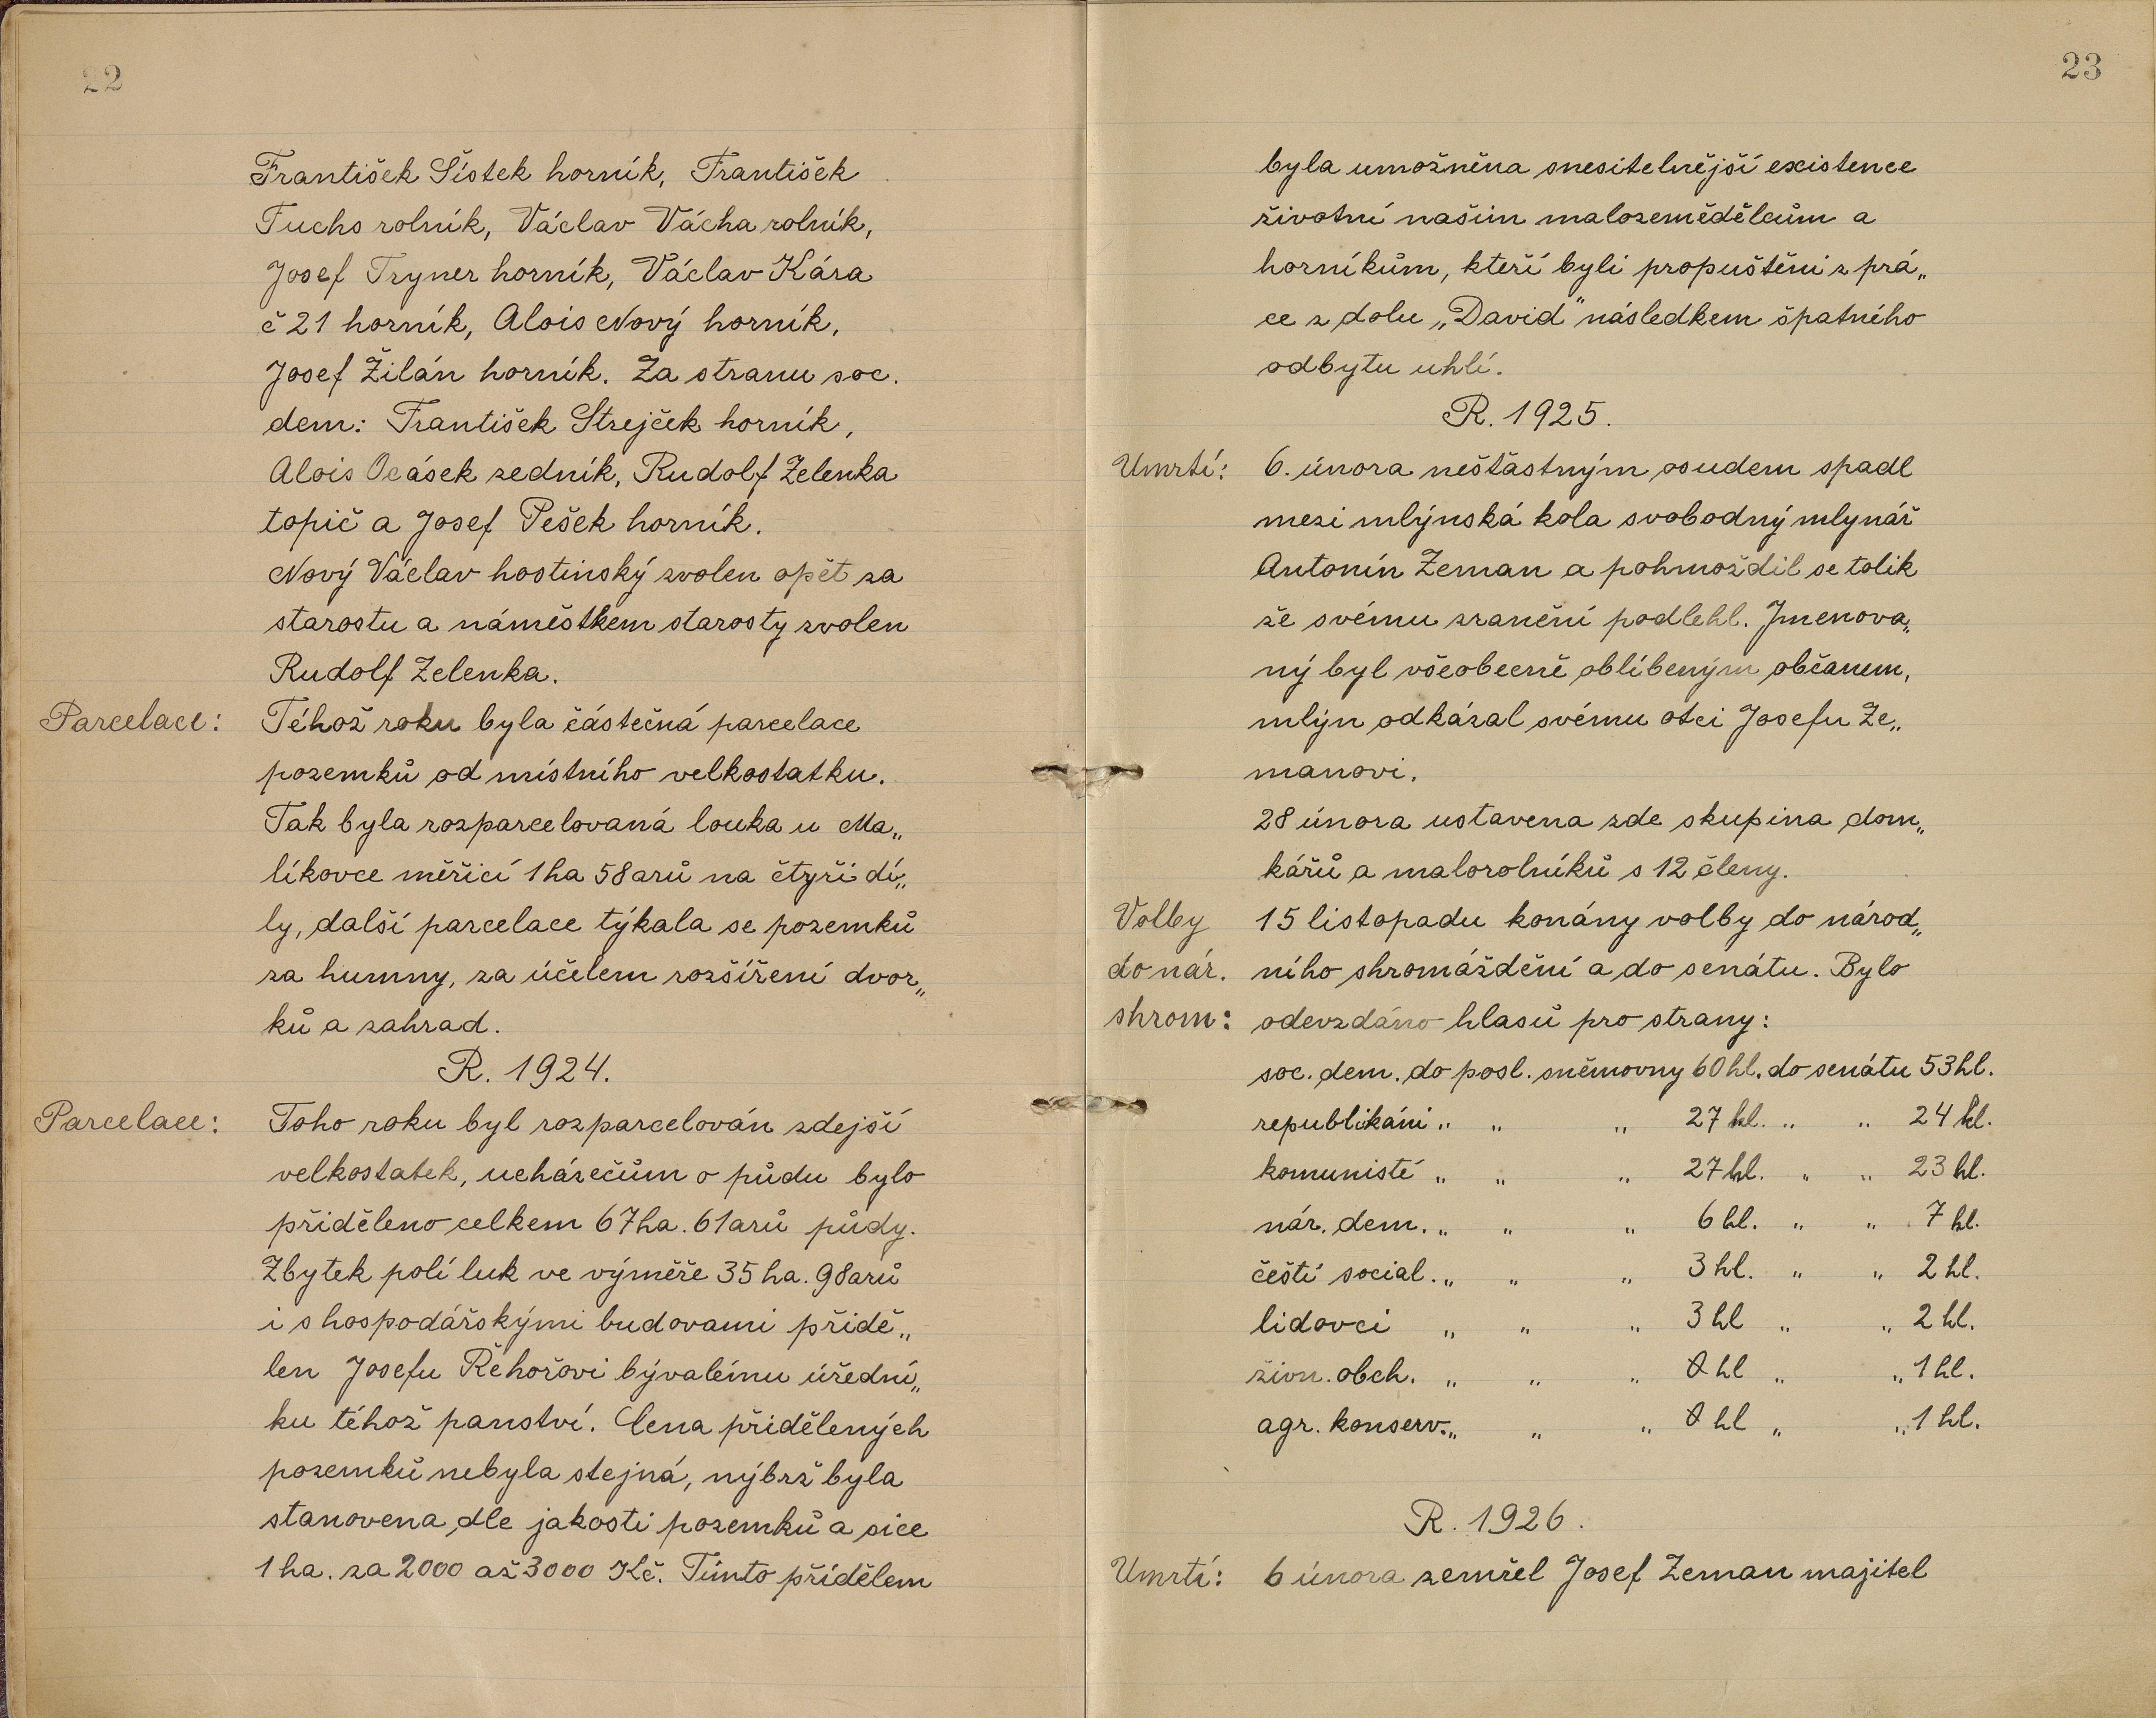 22
František Šístek horník, František
Fuchs rolník, Václav Vácha rolník,
Josef Tryner horník, Václav Kára
č 21 horník, Alois Nový horník,
Josef Žilán horník. Za stranu soc.
dem: František Strejček horník,
Alois Ocásek zedník, Rudolf Zelenka
topič a Josef Pešek horník.
Nový Václav hostinský zvolen opět za
starostu a náměstkem starosty zvolen
Rudolf Zelenka.
Parcelace: Téhož roku byla částečná parcelace
pozemků od místního velkostatku.
Tak byla rozparcelovaná louka u Ma„
líkovce měřicí 1 ha 58 arů na čtyři dí„
ly, další parcelace týkala se pozemků
za humny, za účelem rozšíření dvor„
ků a zahrad.
R. 1924.
Parcelace: Toho roku byl rozparcelován zdejší
velkostatek, ucházečům o půdu bylo
přiděleno celkem 67 ha. 61 arů půdy.
Zbytek polí luk ve výměře 35 ha. 98 arů
i s hospodářskými budovami přidě„
len Josefu Řehořovi bývalému úřední„
ku téhož panství. Cena přidělených
pozemků nebyla stejná, nýbrž byla
stanovena dle jakosti pozemků a sice
1 ha. za 2000 až 3000 Kč. Tímto přídělem
23
byla umožněna snesitelnější existence
životní našim malozemědělcům a
horníkům, kteří byli propuštěni z prá„
ce z dolu „David" následkem špatného
odbytu uhlí.
R. 1925.
Umrtí: 6. února nešťastným osudem spadl
mezi mlýnská kola svobodný mlynář
Antonín Zeman a pohmoždil se tolik
že svému zranění podlehl. Jmenova„
ný byl všeobecně oblíbeným občanem,
mlýn odkázal svému otci Josefu Ze„
manovi.
28 února ustavena zde skupina dom„
kářů a malorolníků s 12 členy.
Volby 15 listopadu konány volby do národ„
do nár. ního shromáždění a do senátu. Bylo
shrom: odevzdáno hlasů pro strany:
soc. dem. do posl. sněmovny 60 hl. do senátu 53 hl.
republikáni „ „ „ 27 hl. „ „ 24 hl.
komunisté „ „ „ 27 hl. „ „ 23 hl.
nár. dem. „ „ „ 6 hl. „ „ 7 hl.
čeští social. „ „ „ 3 hl. „ „ 2 hl.
lidovci „ „ „ 3 hl „ „ 2 hl.
živn. obch. „ „ „ 0 hl „ „ 1 hl.
agr. konserv. „ „ „ 0 hl „ „ 1 hl.
R. 1926.
Umrtí: 6 února zemřel Josef Zeman majitel